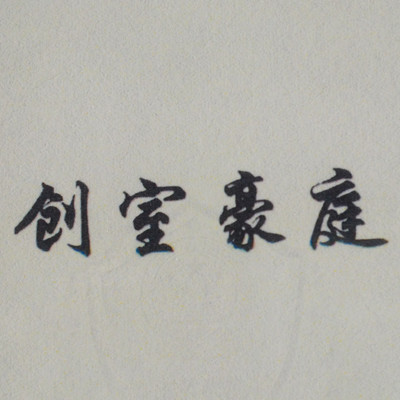 创室豪庭